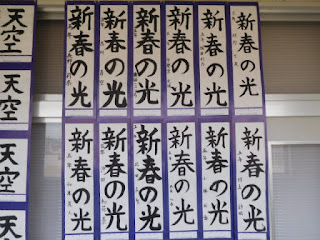 天空
天空
天空
天空
新春の光
新春の光
新春の光
新春の光
新春の光
新春の光
新春の光
新春の光
新春の光
新春の光
新春の光
新春の光